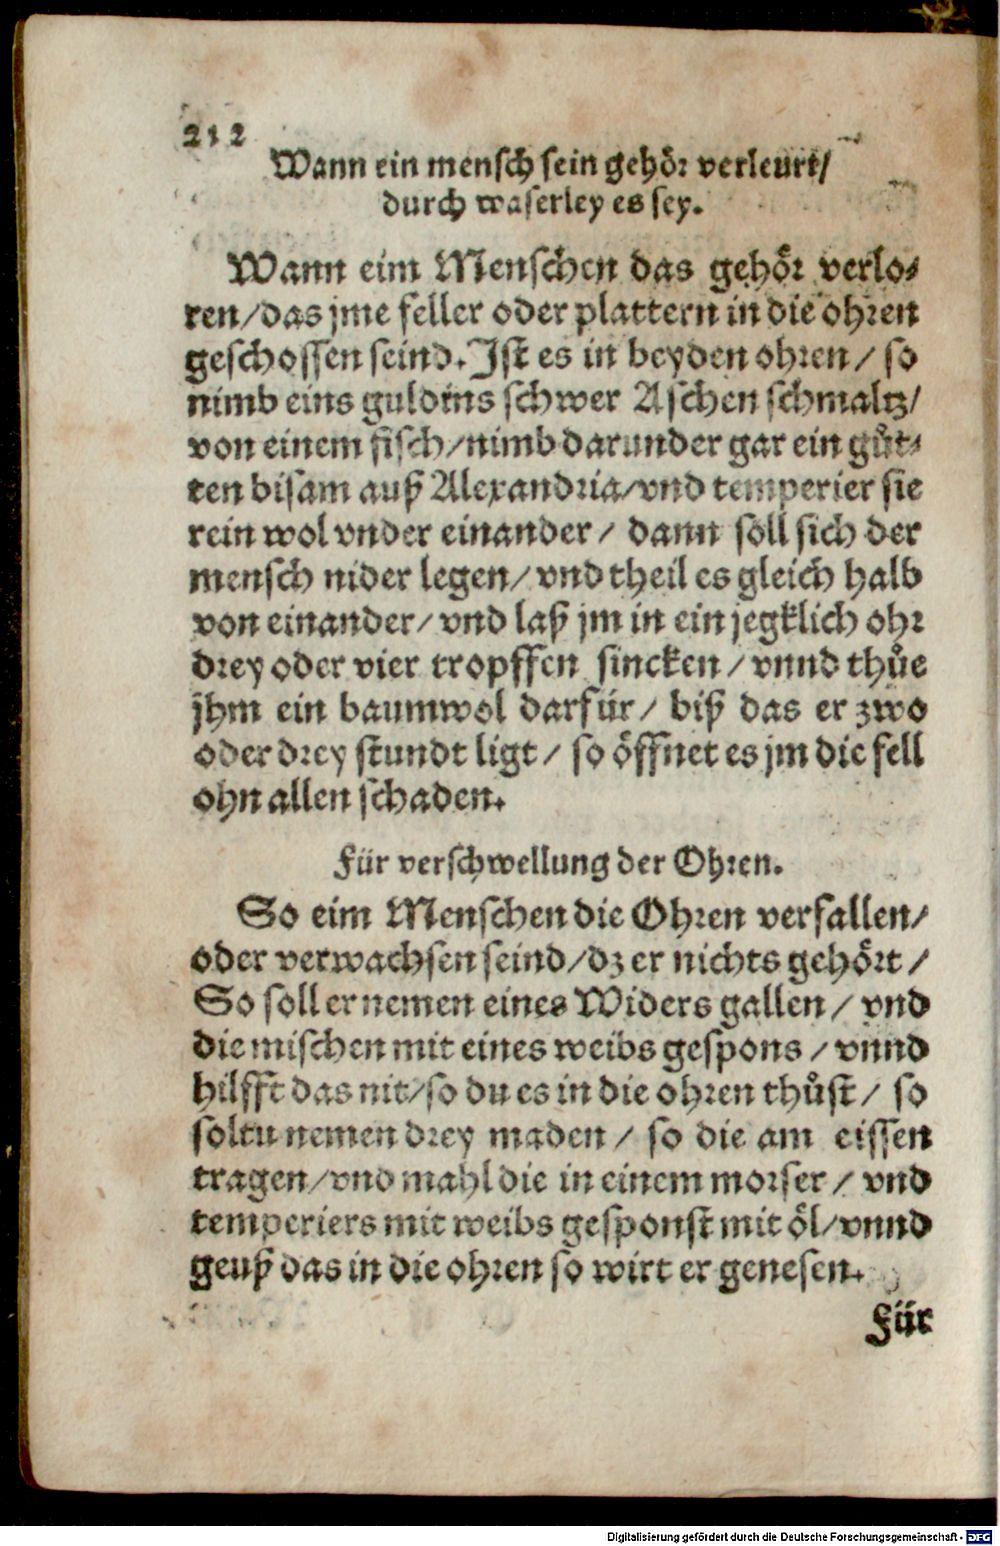 212
Wann ein mensch sein gehör verleurt/
durch waserley es sey.
Wann eim Menschen das gehör verlo⸗
ren/das jme feller oder plattern in die ohren
geschossen seind. Ist es in beyden ohren/ so
nimb eins guldins schwer Aschen schmaltz/
von einem fisch/nimb darunder gar ein gůt⸗
ten bisam auß Alexandria/vnd temperier sie
rein wol vnder einander/ dann soll sich der
mensch nider legen/ vnd theil es gleich halb
von einander/ vnd laß jm in ein jegklich ohr
drey oder vier tropffen sincken/ vnnd thůe
jhm ein baumwol darfür/ biß das er zwo
oder drey stundt ligt/ so öffnet es jm die fell
ohn allen schaden.
Für verschwellung der Ohren.
So eim Menschen die Ohren verfallen/
oder verwachsen seind/dz er nichts gehört/
So soll er nemen eines Widers gallen/ vnd
die mischen mit eines weibs gespons/ vnnd
hilfft das nit/so du es in die ohren thůst/ so
soltu nemen drey maden/ so die am eissen
tragen/vnd mahl die in einem morser/ vnd
temperiers mit weibs gesponst mit öl/vnnd
geuß das in die ohren so wirt er genesen.
Für
Digitalisierung gefördert durch die Deutsche Forschungsgemeinschaft - DFG